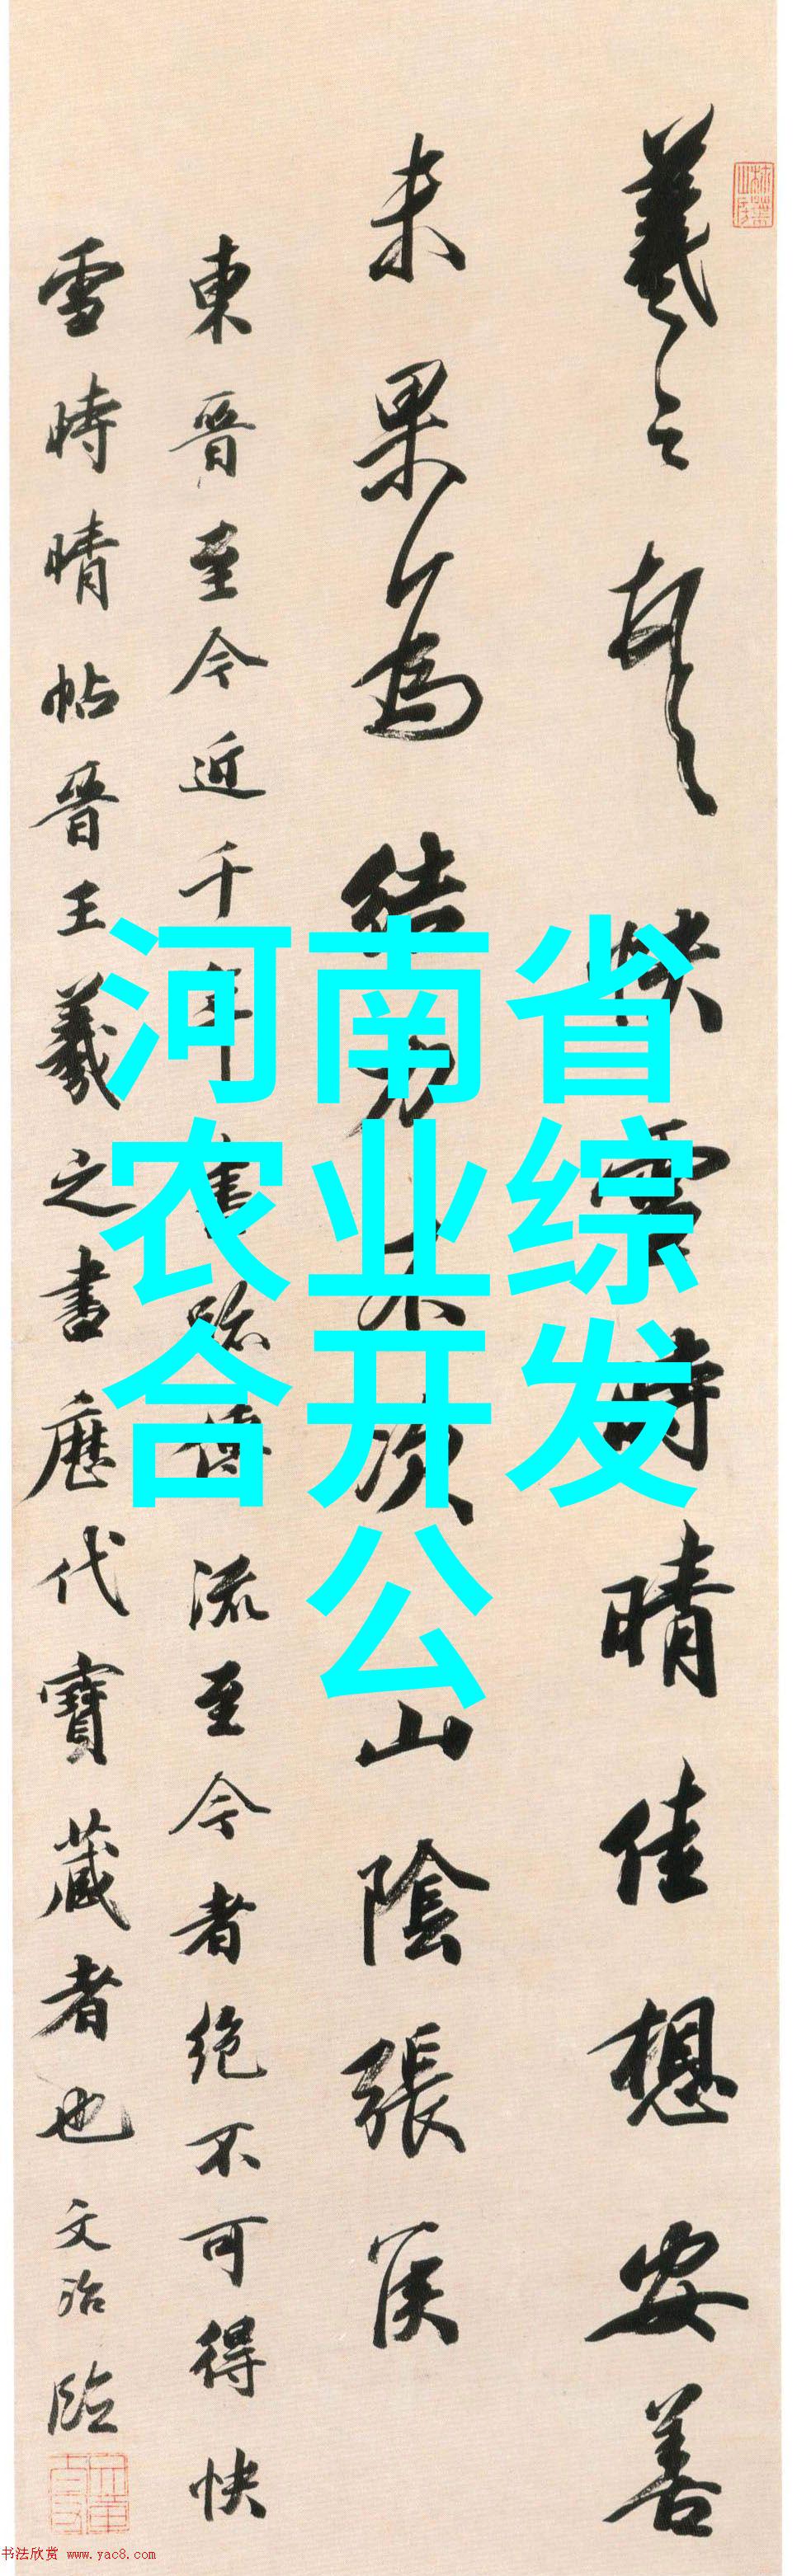 羲之頓首快雪時晴佳想安善
未果為結力不次山陰張侯
東晉至今近千年書跡傳流至今者絶不可得快
雪時晴帖晉王羲之書歷代寶藏者也文治臨
河南省
农业综
合开发
公
书法欣赏 www.yac8.com